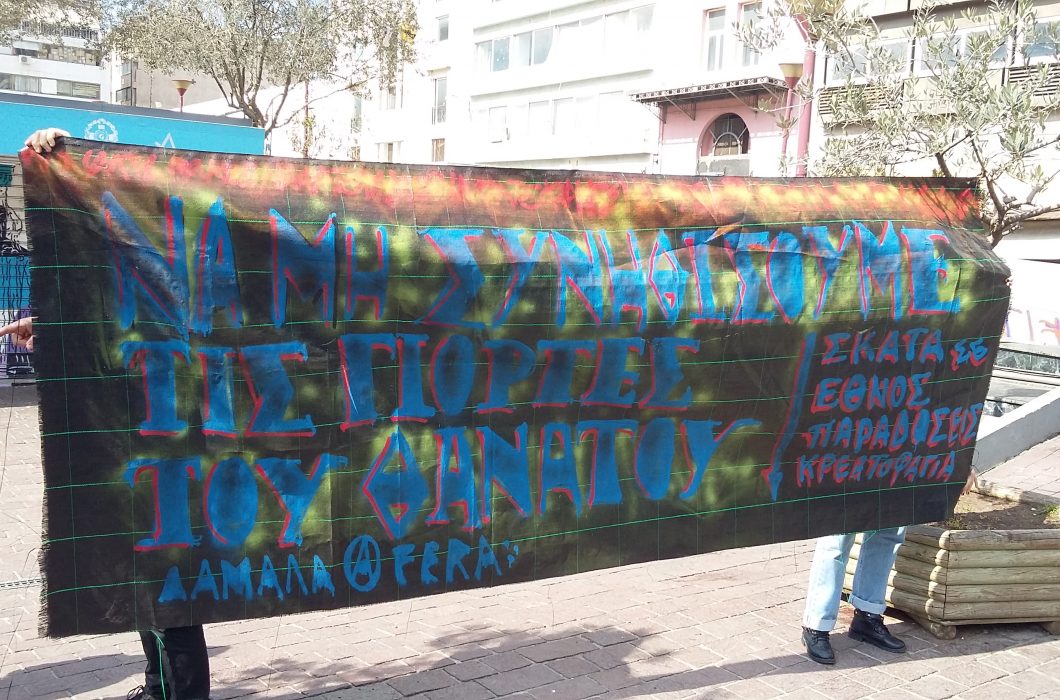 ΝΑ ΜΗ ΣΥΝΗΘΙΣΟΥΜΕ
ΤΙΣ ΓΙΟΡΤΕΣ
ΤΟΥ ΘΑΝΑΤΟΥ
ΣΚΑΤΑ ΣΕ
ΕΘΝΟΣ
ΠΑΡΑΔΟΣΕΙΣ
ΚΡΕΑΤΟΦΑΓΙΑ
ΔΑΜΑΛΑ Ⓐ FERA